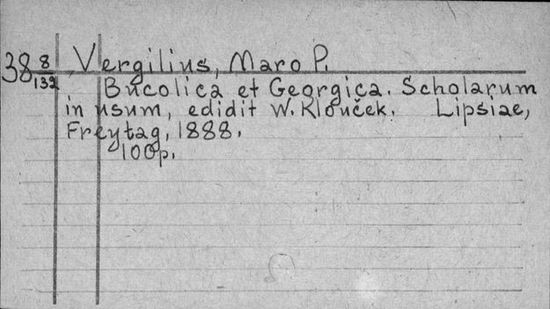 38 8/132 Vergilius, Maro P.
Bucolica et Georgica. Scholarum
in usum, edidit W. Klouček. Lipsiae,
Freytag, 1888.
100p.